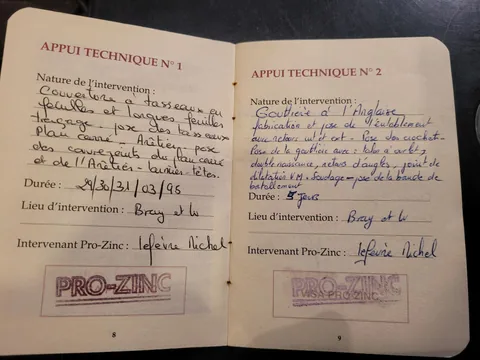 APPUI TECHNIQUE N° 1
Nature de l'intervention :
Couverture à tasseaux en
feuilles et longues feuilles
traçage - pose des tasseaux
Plan carré - Arêtier - pose
des couvrejoints du plan carré
et de l'Arêtier - têtes.
Durée : 29/30/31/03/95
Lieu d'intervention : Bray et Lu
Intervenant Pro-Zinc : lefèvre Michel
PRO-ZINC
8
APPUI TECHNIQUE N° 2
Nature de l'intervention :
Gouttière à l'Anglaise
fabrication et pose de l'Entablement
avec retour et - Pose des crochets -
Pose de la gouttière avec : talon à
double naissance, retour d'angles, joint de
dilatation VM - Soudage - pose de la bande de
batellement
Durée : 5 jours
Lieu d'intervention : Bray et Lu
Intervenant Pro-Zinc : lefèvre Michel
PRO-ZINC
VISA PRO-ZINC
9